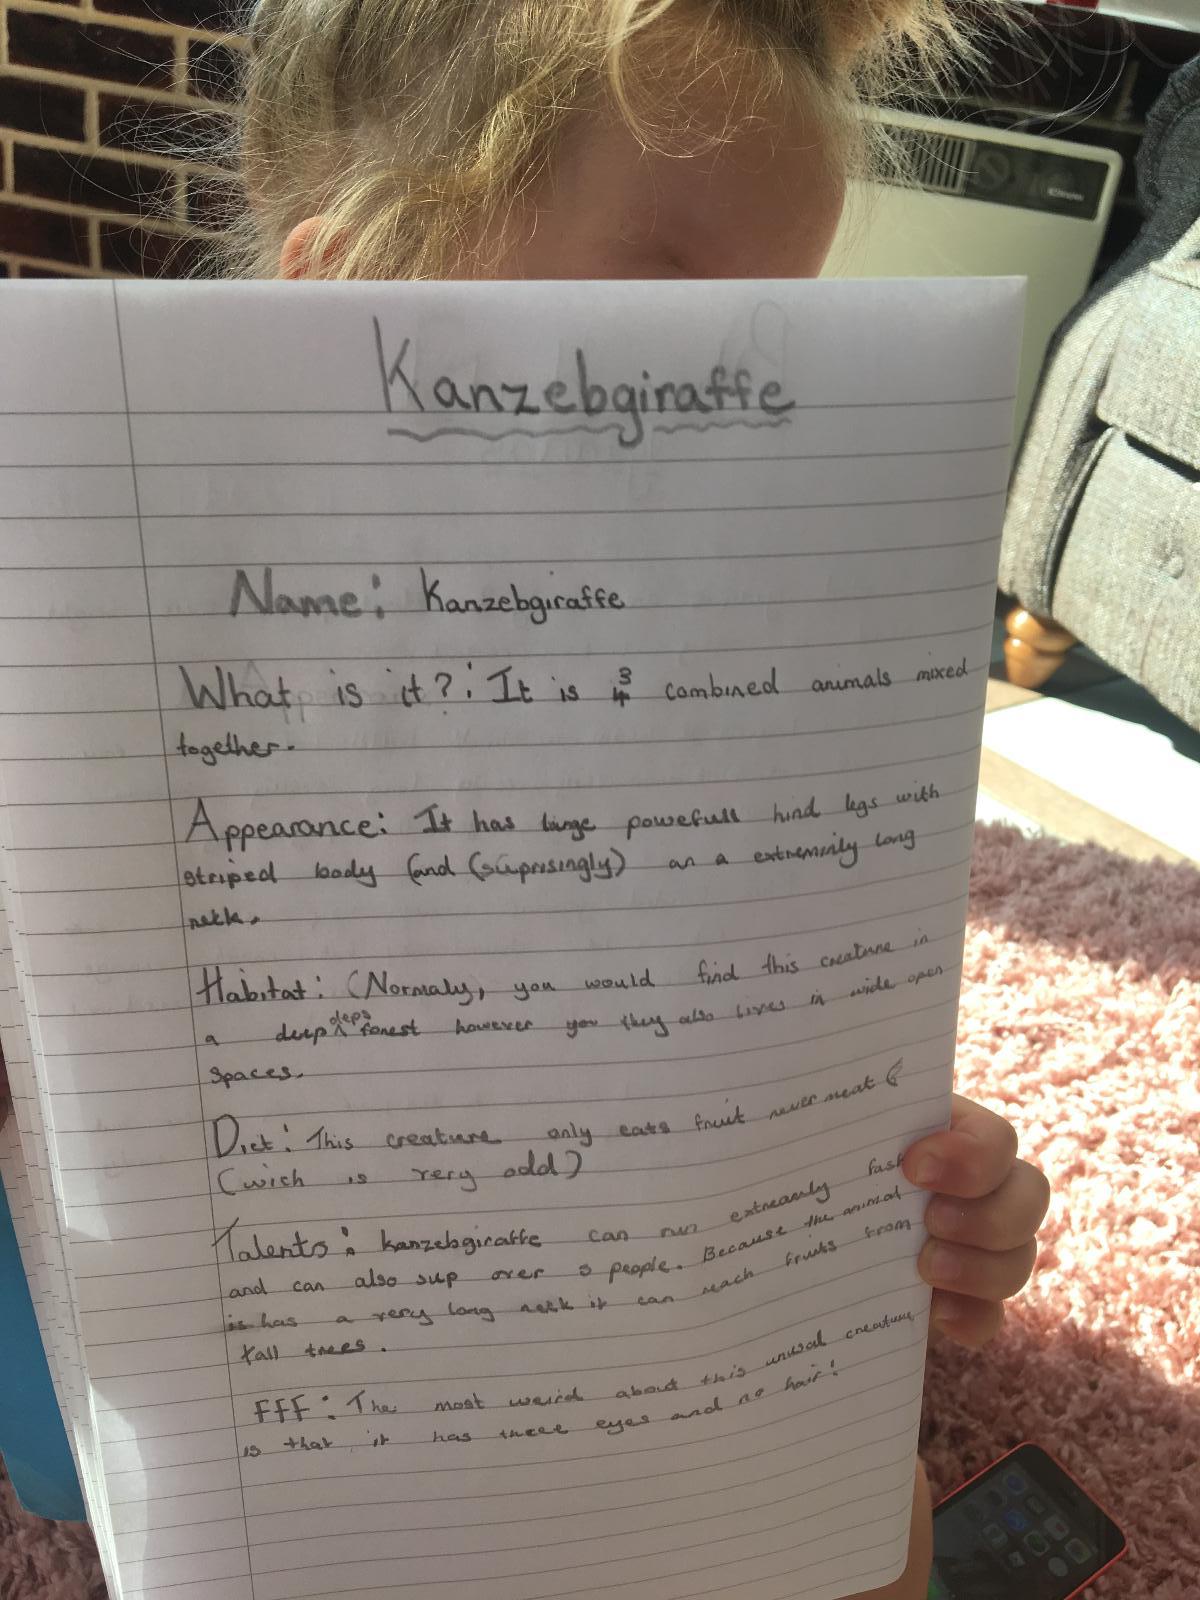 Kanzebgiraffe
Name: Kanzebgiraffe
What is it?: It is 3 combined animals mixed
together.
Appearance: It has large powefull hind legs with
striped body (and (suprisingly) an a extremily long
neck.
Habitat: (Normaly, you would find this creature in
a deep deps forest however you they also lives in wide open
spaces.
Diet: This creature only eats fruit never meat (
(wich is very odd)
Talents: Kanzebgiraffe can run extreamly fast
and can also sup over 5 people. Because the animal
is has a very long neck it can reach fruits from
tall trees.
FFF: The most weird about this unusal creature
is that it has three eyes and no hair!